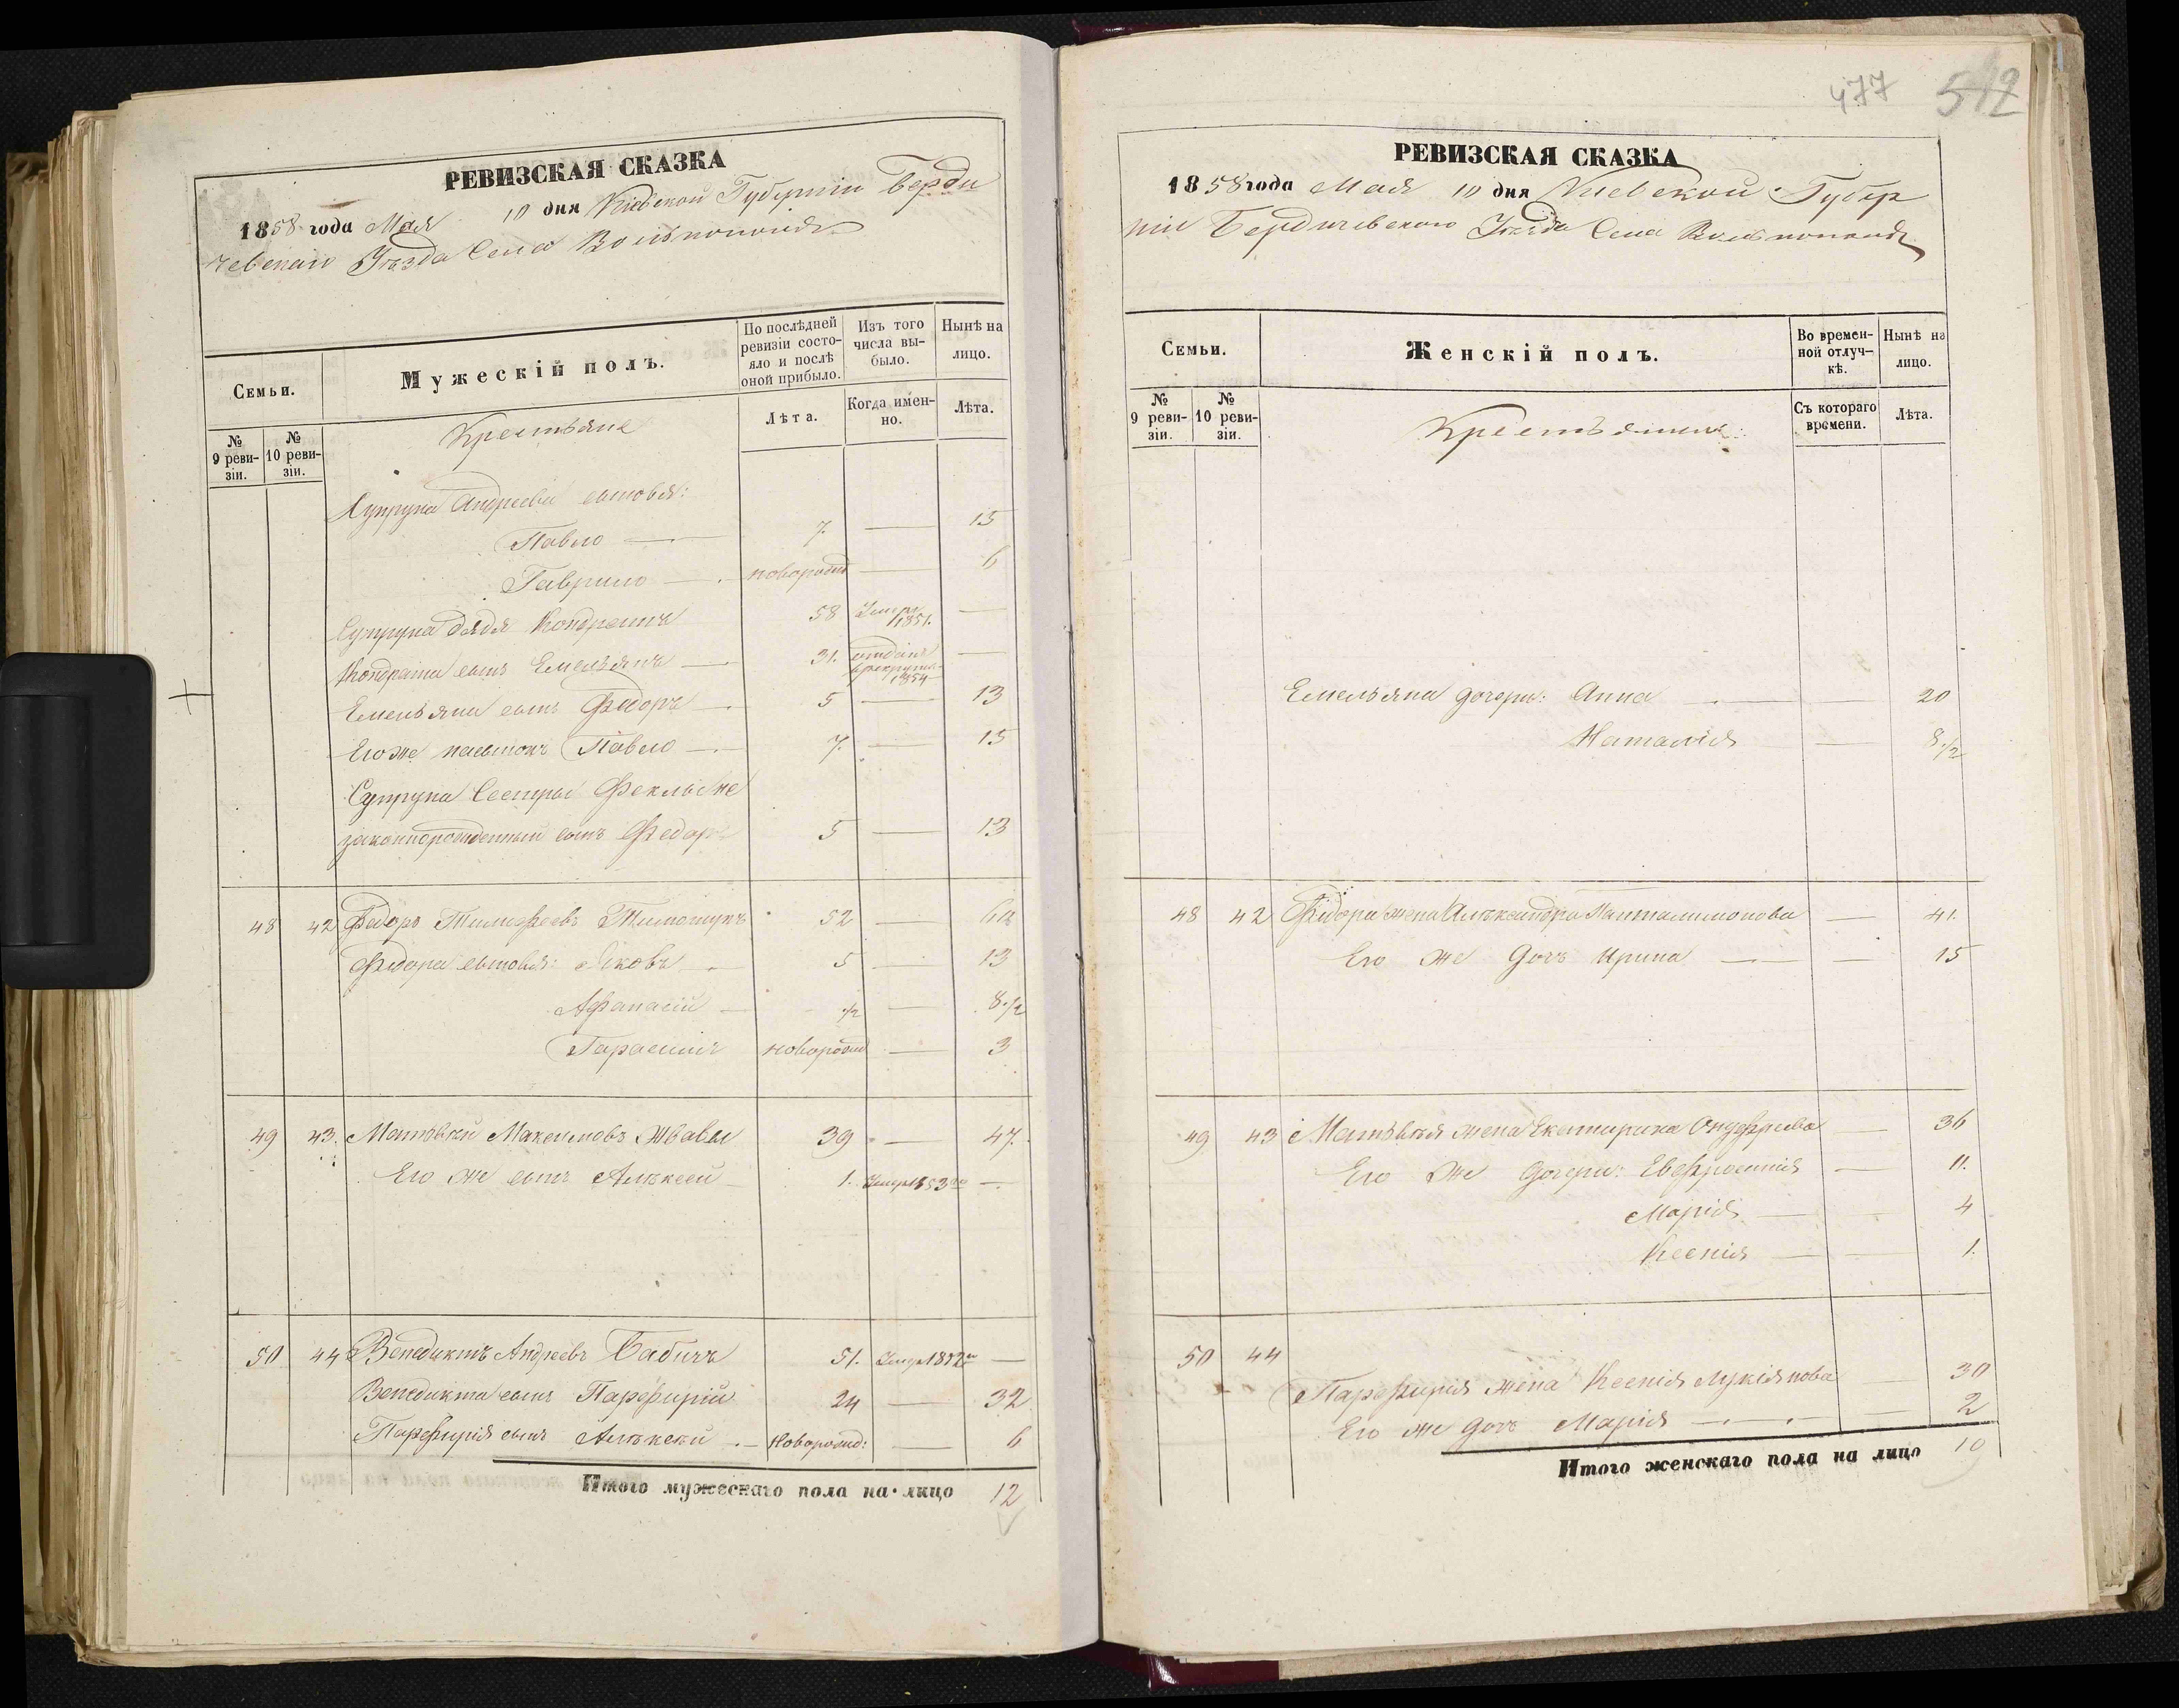 РЕВИЗСКАЯ СКАЗКА
1858 года Мая 10 дня Кіевской Губерніи Берди
чевскаго Уѣзда Села
Семьи.
Мужескій полъ.
По послѣдней ревизіи состо-
яло и послѣ оной прибыло.
Изъ того числа вы-
было.
Нынѣ на лицо.
№ 9 реви-
зіи.
№ 10 реви-
зіи.
Лѣта.
Когда имен-
но.
Лѣта.
Крестьяне
Супруна Андреева сыновья:
Павло — 7. — 15
Гаврило — новорожд — 6
Супруна дядя Кондратъ 58 Умеръ 1851. —
Кондрата сынъ Емельянъ — 31. отданъ в рекруты 1854 —
Емельяна сынъ Фидоръ — 5 — 13
Его же пасынокъ Павло — 7. — 15
Супруна Сестры Феклы не
законнорожденный сынъ Федоръ 5 — 13
48 42 Фидоръ Тимофеевъ Тимощукъ 52 — 60
Фидора сыновья: Яковъ — 5 — 13
Афанасій — 1/2 — 8 1/2
Гарасимъ новорожд — 3
49 43. Матвѣй Максимовъ Жвавы 39 — 47.
Его же сынъ Алѣксей — 1. Умеръ 1853 —
50 44 Венедиктъ Андреевъ Бабичъ 51. Умер 1852 —
Венедикта сынъ Парфирій 24 — 32
Парфирія сынъ Алѣксѣй — Новорожд: — 6
Итого мужескаго пола на лицо 12
477 512
РЕВИЗСКАЯ СКАЗКА
1858 года Мая 10 дня Кіевской Губер
ніи Бердичевскаго Уѣзда Села
Семьи.
Женскій полъ.
Во времен-
ной отлуч-
кѣ.
Нынѣ на лицо.
№ 9 реви-
зіи.
№ 10 реви-
зіи.
Съ котораго времени.
Лѣта.
Крестьянки
Емельяна дочери: Анна — — 20
Наталія — 8 1/2
48 42 Фидора жена Алѣксандра Панталимонова — 41.
Его же дочь Ирина — — 15
49 43 Матвѣя жена Екатирина Онуфріева — 36
Его же дочери: Евфросинія — 11.
Марія — — 4
Ксенія — — 1.
50 44
Парфирія жена Ксенія Лукіянова — 30
Его же дочь Марія — — 2
Итого женскаго пола на лицо 10